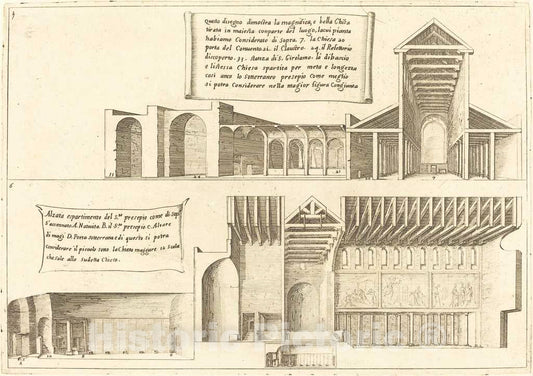 5
Questo disegno dimostra la magnifica, e bella Chiesa
tirata in maiesta conparte del luogo, la cui pianta
habbiamo Considerato di Sopra. 7. la Chiesa 20
porta del Convento 21. il Claustro. 24. il Refettorio
discoperto. 33. stanza di S. Girolamo. le di bascio
e l'istessa Chiesa spartita per meta e longezza
cosi anco lo sotterraneo presepio Come meglio
si potra Considerare nella magior figura Congionta
6
Alzata espartimento del S.mo presepio come di Sopra
s'accennato. A. Natiuita. B. il S.mo presepio C. Altare
di magi D. Porta sotterranea di questo si potra
Considerare il piccolo sotto la Chiesa magiore 12 Scala
che sale alla sudetta Chiesa.
Historic Pictoric